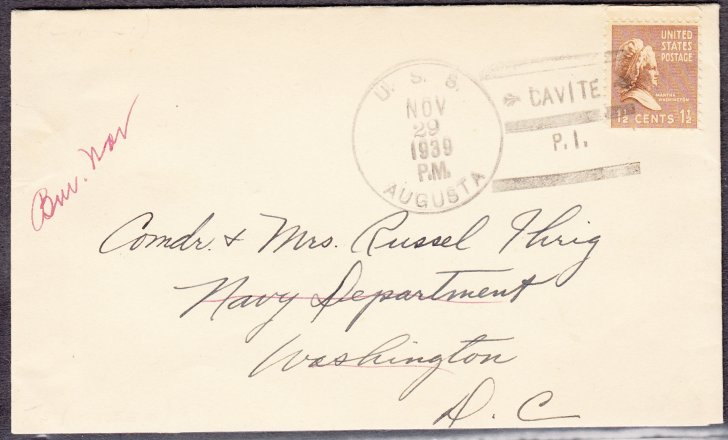 U. S. S.
NOV
29
1939
P.M.
AUGUSTA
CAVITE
P.I.
UNITED
STATES
POSTAGE
MARTHA
WASHINGTON
1½ CENTS 1½
Bur. Nav
Comdr. & Mrs. Russel Ihrig
Navy Department
Washington
D. C